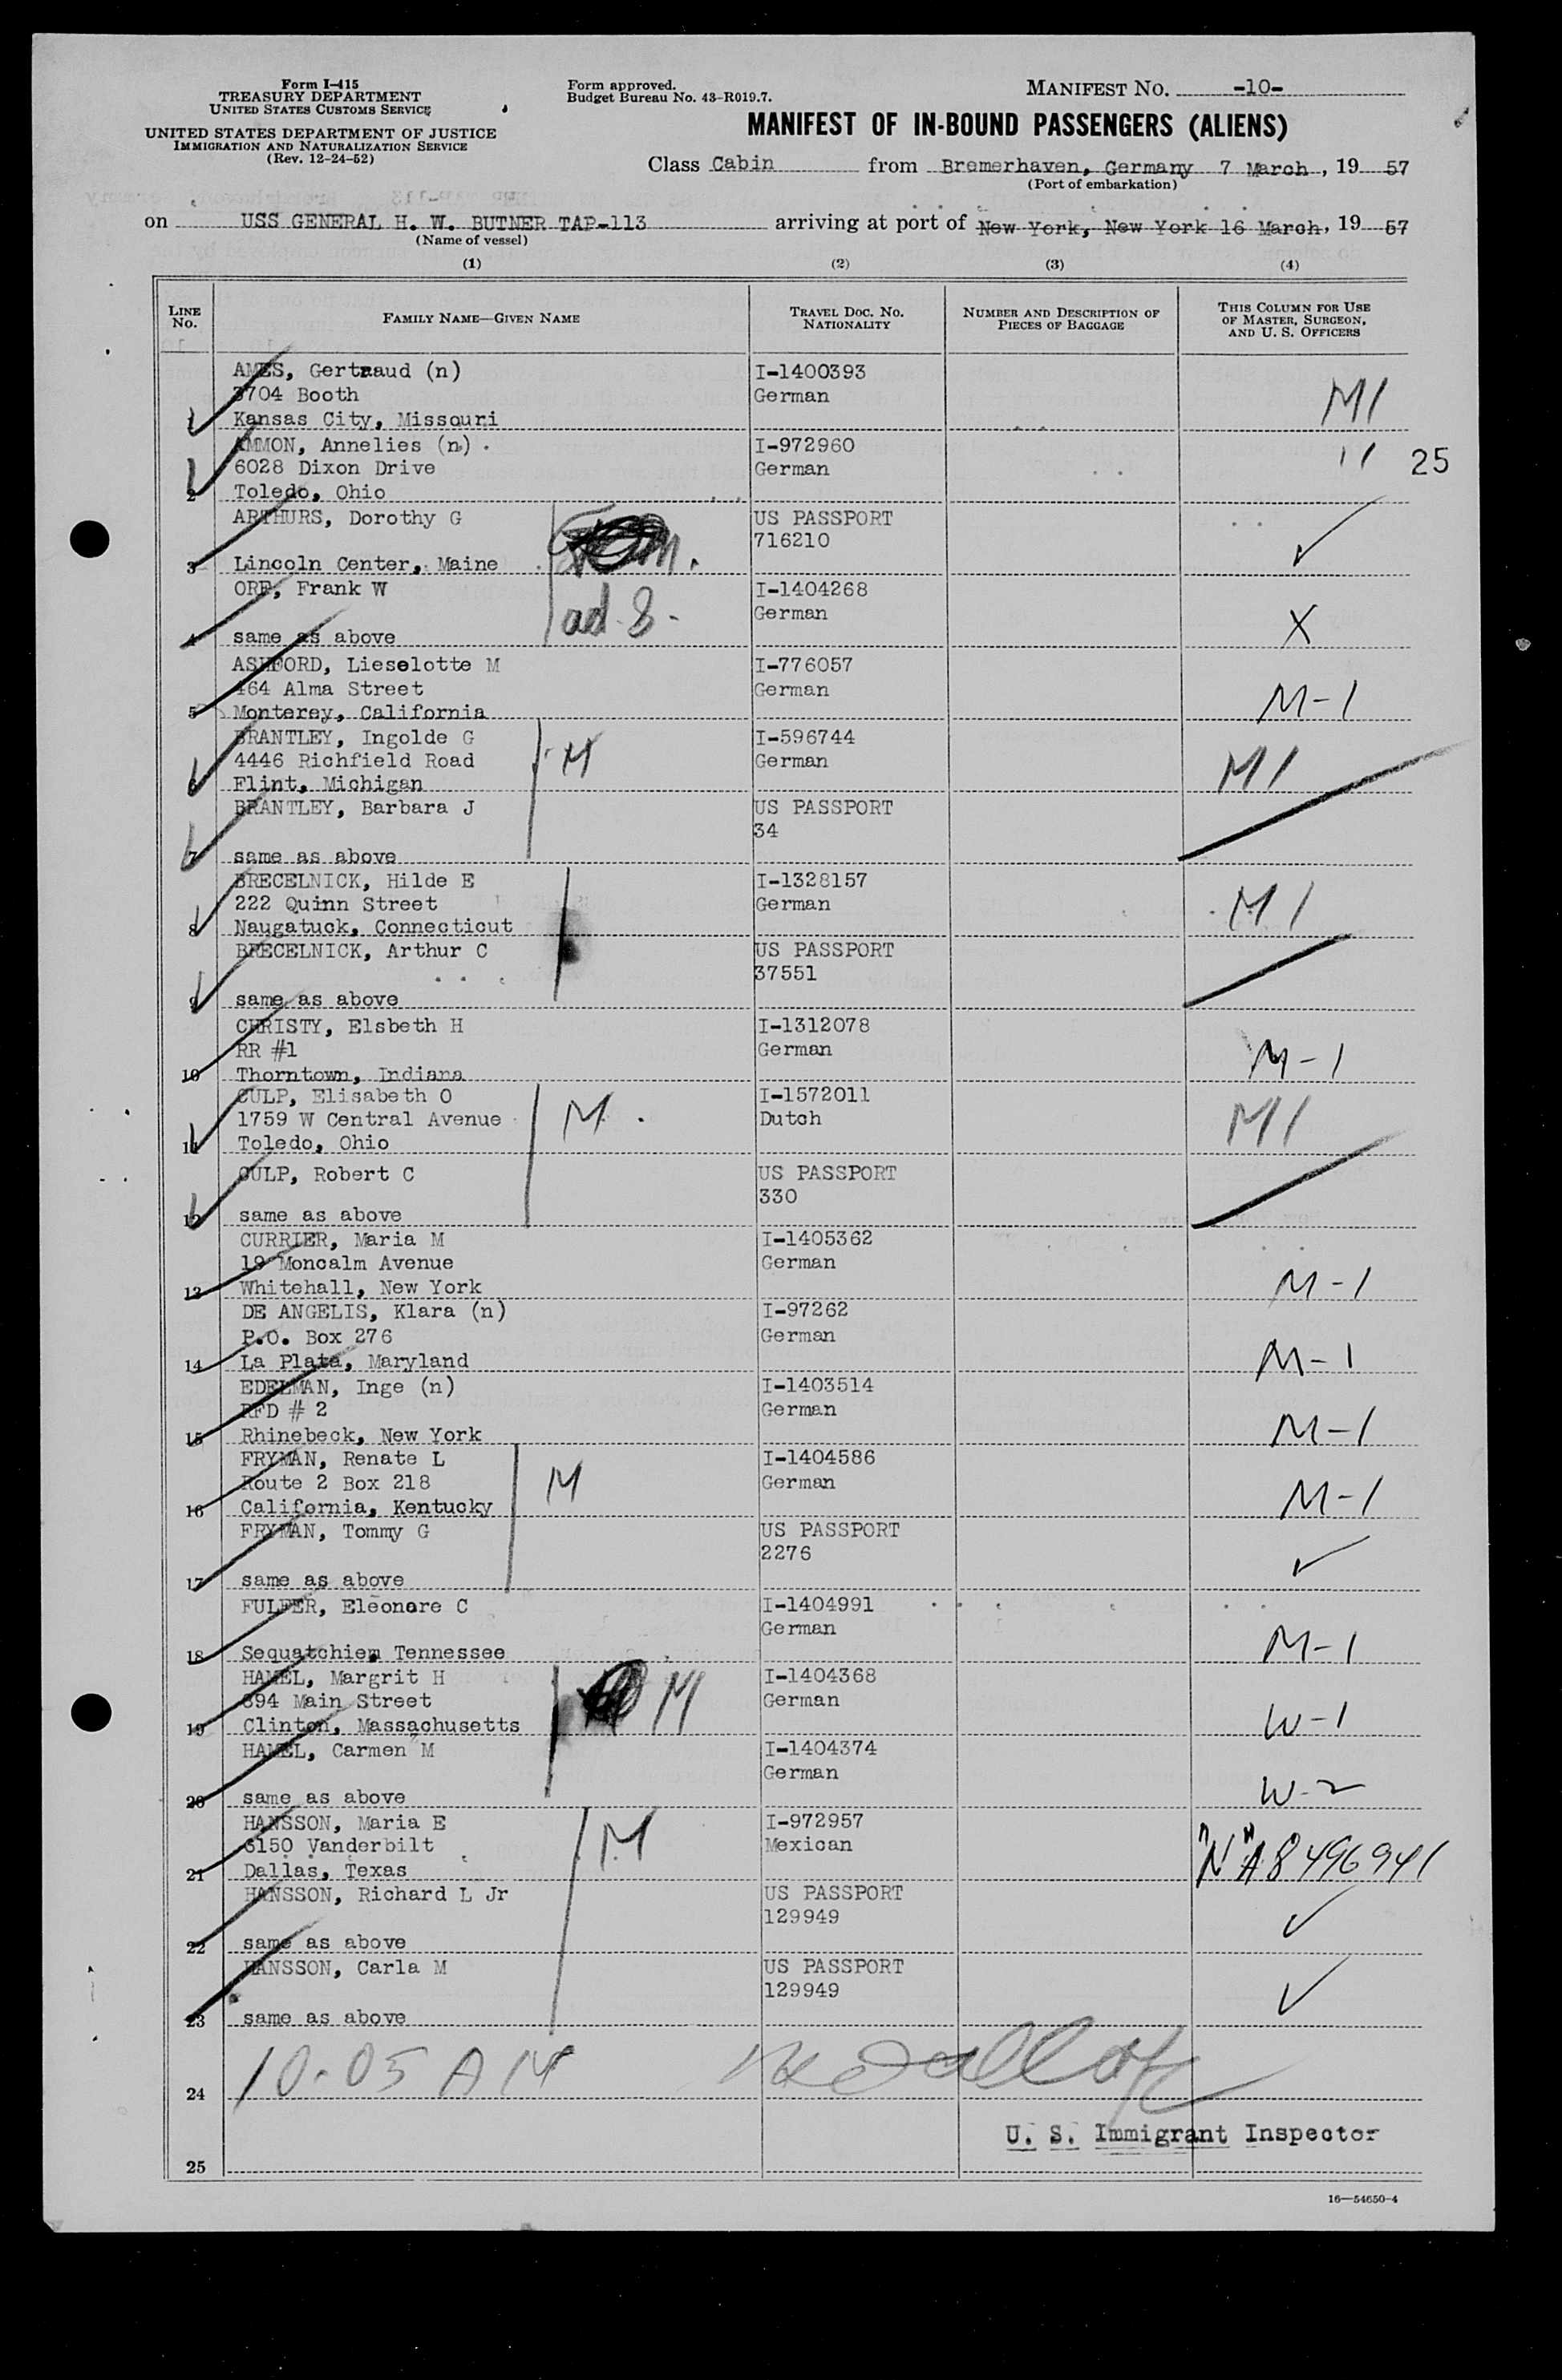 Form I-415
TREASURY DEPARTMENT
UNITED STATES CUSTOMS SERVICE
UNITED STATES DEPARTMENT OF JUSTICE
IMMIGRATION AND NATURALIZATION SERVICE
(Rev. 12-24-52)
Form approved.
Budget Bureau No. 43-R019.7.
MANIFEST NO. -10-
MANIFEST OF IN-BOUND PASSENGERS (ALIENS)
Class Cabin from Bremerhaven, Germany 7 March, 19 57
(Port of embarkation)
on USS GENERAL H. W. BUTNER TAP-113 arriving at port of New York, New York 16 March, 19 57
(Name of vessel)
(1) (2) (3) (4)
LINE No. FAMILY NAME—GIVEN NAME TRAVEL DOC. NO. NATIONALITY NUMBER AND DESCRIPTION OF PIECES OF BAGGAGE THIS COLUMN FOR USE OF MASTER, SURGEON, AND U. S. OFFICERS
AMES, Gertraud (n) I-1400393
3704 Booth German M1
1 Kansas City, Missouri
AMMON, Annelies (n) I-972960
6028 Dixon Drive German 11 25
2 Toledo, Ohio
ARTHURS, Dorothy G US PASSPORT
716210 ✓
3 Lincoln Center, Maine
ORF, Frank W I-1404268
ad. 8- German
4 same as above X
ASHFORD, Lieselotte M I-776057
464 Alma Street German M-1
5 Monterey, California
BRANTLEY, Ingolde G I-596744
4446 Richfield Road M German M1
6 Flint, Michigan
BRANTLEY, Barbara J US PASSPORT
34
7 same as above
BRECELNICK, Hilde E I-1328157
222 Quinn Street German M1
8 Naugatuck, Connecticut
BRECELNICK, Arthur C US PASSPORT
37551
9 same as above
CHRISTY, Elsbeth H I-1312078
RR #1 German M-1
10 Thorntown, Indiana
CULP, Elisabeth O I-1572011
1759 W Central Avenue M. Dutch M1
11 Toledo, Ohio
CULP, Robert C US PASSPORT
330
12 same as above
CURRIER, Maria M I-1405362
19 Moncalm Avenue German
13 Whitehall, New York M-1
DE ANGELIS, Klara (n) I-97262
P.O. Box 276 German
14 La Plata, Maryland M-1
EDELMAN, Inge (n) I-1403514
RFD # 2 German M-1
15 Rhinebeck, New York
FRYMAN, Renate L I-1404586
Route 2 Box 218 M German M-1
16 California, Kentucky
FRYMAN, Tommy G US PASSPORT
2276 ✓
17 same as above
FULFER, Eleonore C I-1404991
German
18 Sequatchiem Tennessee M-1
HAMEL, Margrit H I-1404368
394 Main Street M German
19 Clinton, Massachusetts W-1
HAMEL, Carmen M I-1404374
German
20 same as above W-2
HANSSON, Maria E I-972957
6150 Vanderbilt M Mexican
21 Dallas, Texas A8496941
HANSSON, Richard L Jr US PASSPORT
129949 ✓
22 same as above
HANSSON, Carla M US PASSPORT
129949 ✓
23 same as above
24 10.05 AM
U. S. Immigrant Inspector
25
16—54650-4